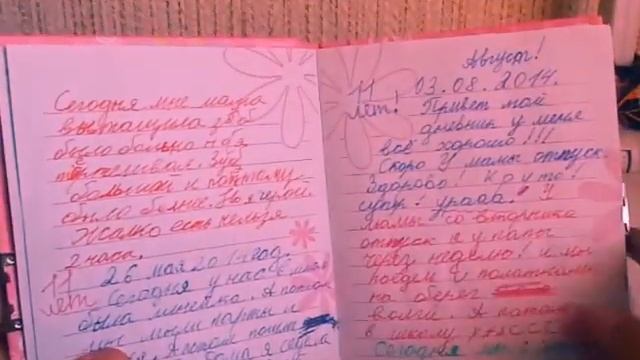 Сегодня мне мама
вытащила зуб
было больно
Зуб
большой и поэтому
было больно. Но я герой.
Жалко есть нельзя
2 часа.
11 лет
26 мая 201 год
Сегодня у нас в школе
была линейка. А потом
мы мыли парты и
А потом
я сидела
Август!
11 лет!
03.08.2014.
Привет мой
дневник у меня
всё хорошо!!!
Скоро у мамы отпуск.
Здорово! Круто!
супер! урааа! У
мамы со вторника
отпуск а у папы
через неделю! и мы
поедем и
на берег
волги. А потом
в школу
Сегодня